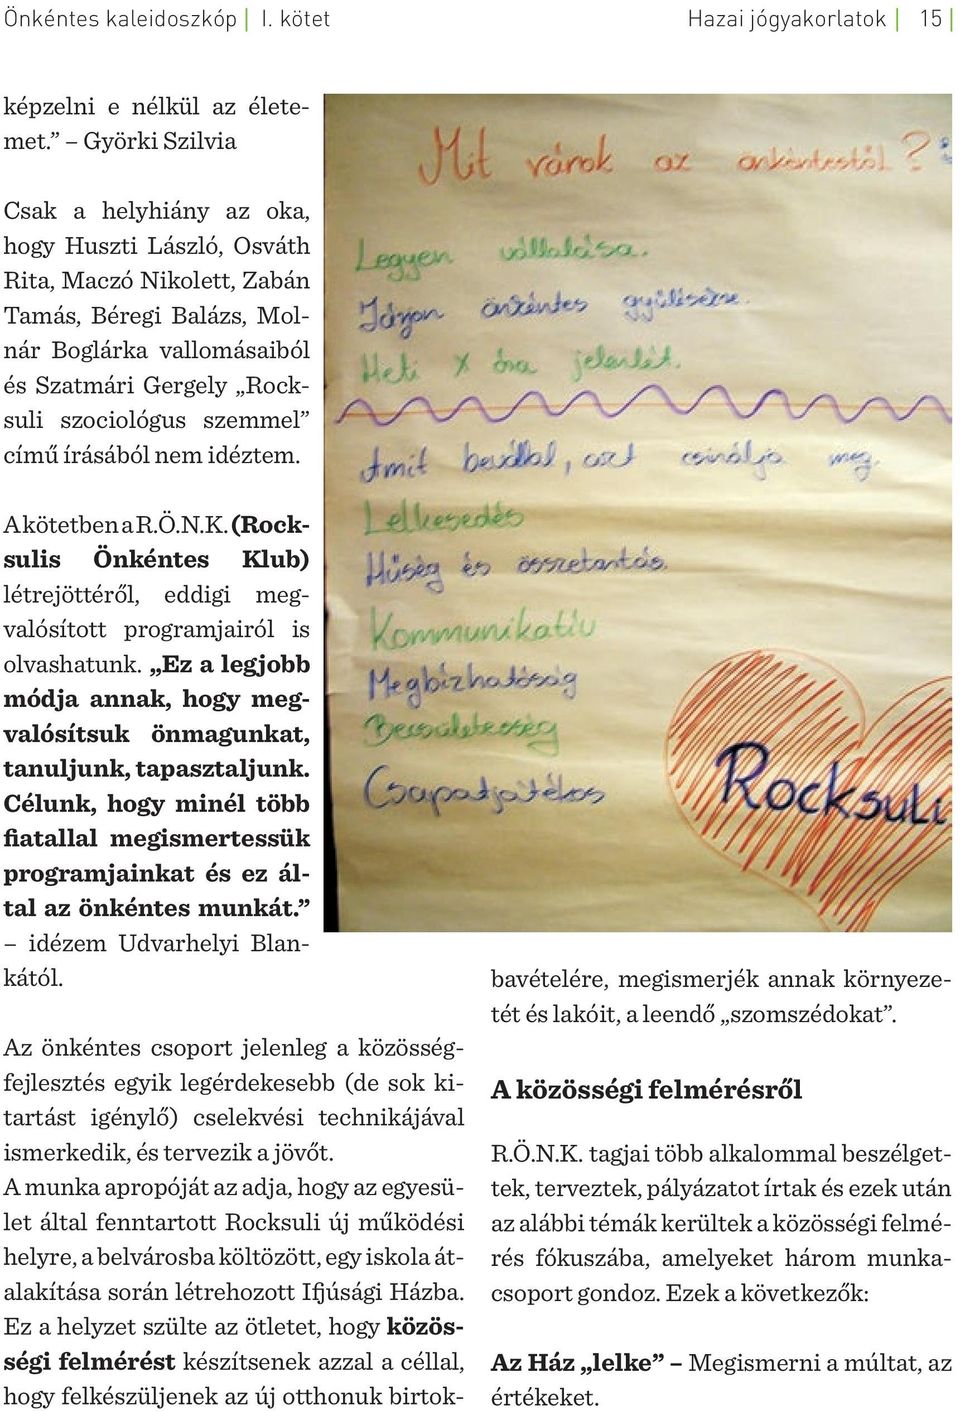 Önkéntes kaleidoszkóp | I. kötet
Hazai jógyakorlatok | 15 |
képzelni e nélkül az élete-
met.” – Györki Szilvia
Csak a helyhiány az oka,
hogy Huszti László, Osváth
Rita, Maczó Nikolett, Zabán
Tamás, Béregi Balázs, Mol-
nár Boglárka vallomásaiból
és Szatmári Gergely „Rock-
suli szociológus szemmel”
című írásából nem idéztem.
A kötetben a R.Ö.N.K. (Rock-
sulis Önkéntes Klub)
létrejöttéről, eddigi meg-
valósított programjairól is
olvashatunk. „Ez a legjobb
módja annak, hogy meg-
valósítsuk önmagunkat,
tanuljunk, tapasztaljunk.
Célunk, hogy minél több
fiatallal megismertessük
programjainkat és ez ál-
tal az önkéntes munkát.”
– idézem Udvarhelyi Blan-
kától.
Mit várok az önkéntestől?
Legyen vállalása.
Járjon önkéntes gyűlésekre.
Heti X óra jelenlét.
Amit bevállal, azt csinálja meg.
Lelkesedés
Hűség és összetartás.
Kommunikatív
Megbízhatóság
Becsületesség
Csapatjátékos
Rocksuli
Az önkéntes csoport jelenleg a közösség-
fejlesztés egyik legérdekesebb (de sok ki-
tartást igénylő) cselekvési technikájával
ismerkedik, és tervezik a jövőt.
A munka apropóját az adja, hogy az egyesü-
let által fenntartott Rocksuli új működési
helyre, a belvárosba költözött, egy iskola át-
alakítása során létrehozott Ifjúsági Házba.
Ez a helyzet szülte az ötletet, hogy közös-
ségi felmérést készítsenek azzal a céllal,
hogy felkészüljenek az új otthonuk birtok-
bavételére, megismerjék annak környeze-
tét és lakóit, a leendő „szomszédokat”.
A közösségi felmérésről
R.Ö.N.K. tagjai több alkalommal beszélget-
tek, terveztek, pályázatot írtak és ezek után
az alábbi témák kerültek a közösségi felmé-
rés fókuszába, amelyeket három munka-
csoport gondoz. Ezek a következők:
Az Ház „lelke” – Megismerni a múltat, az
értékeket.